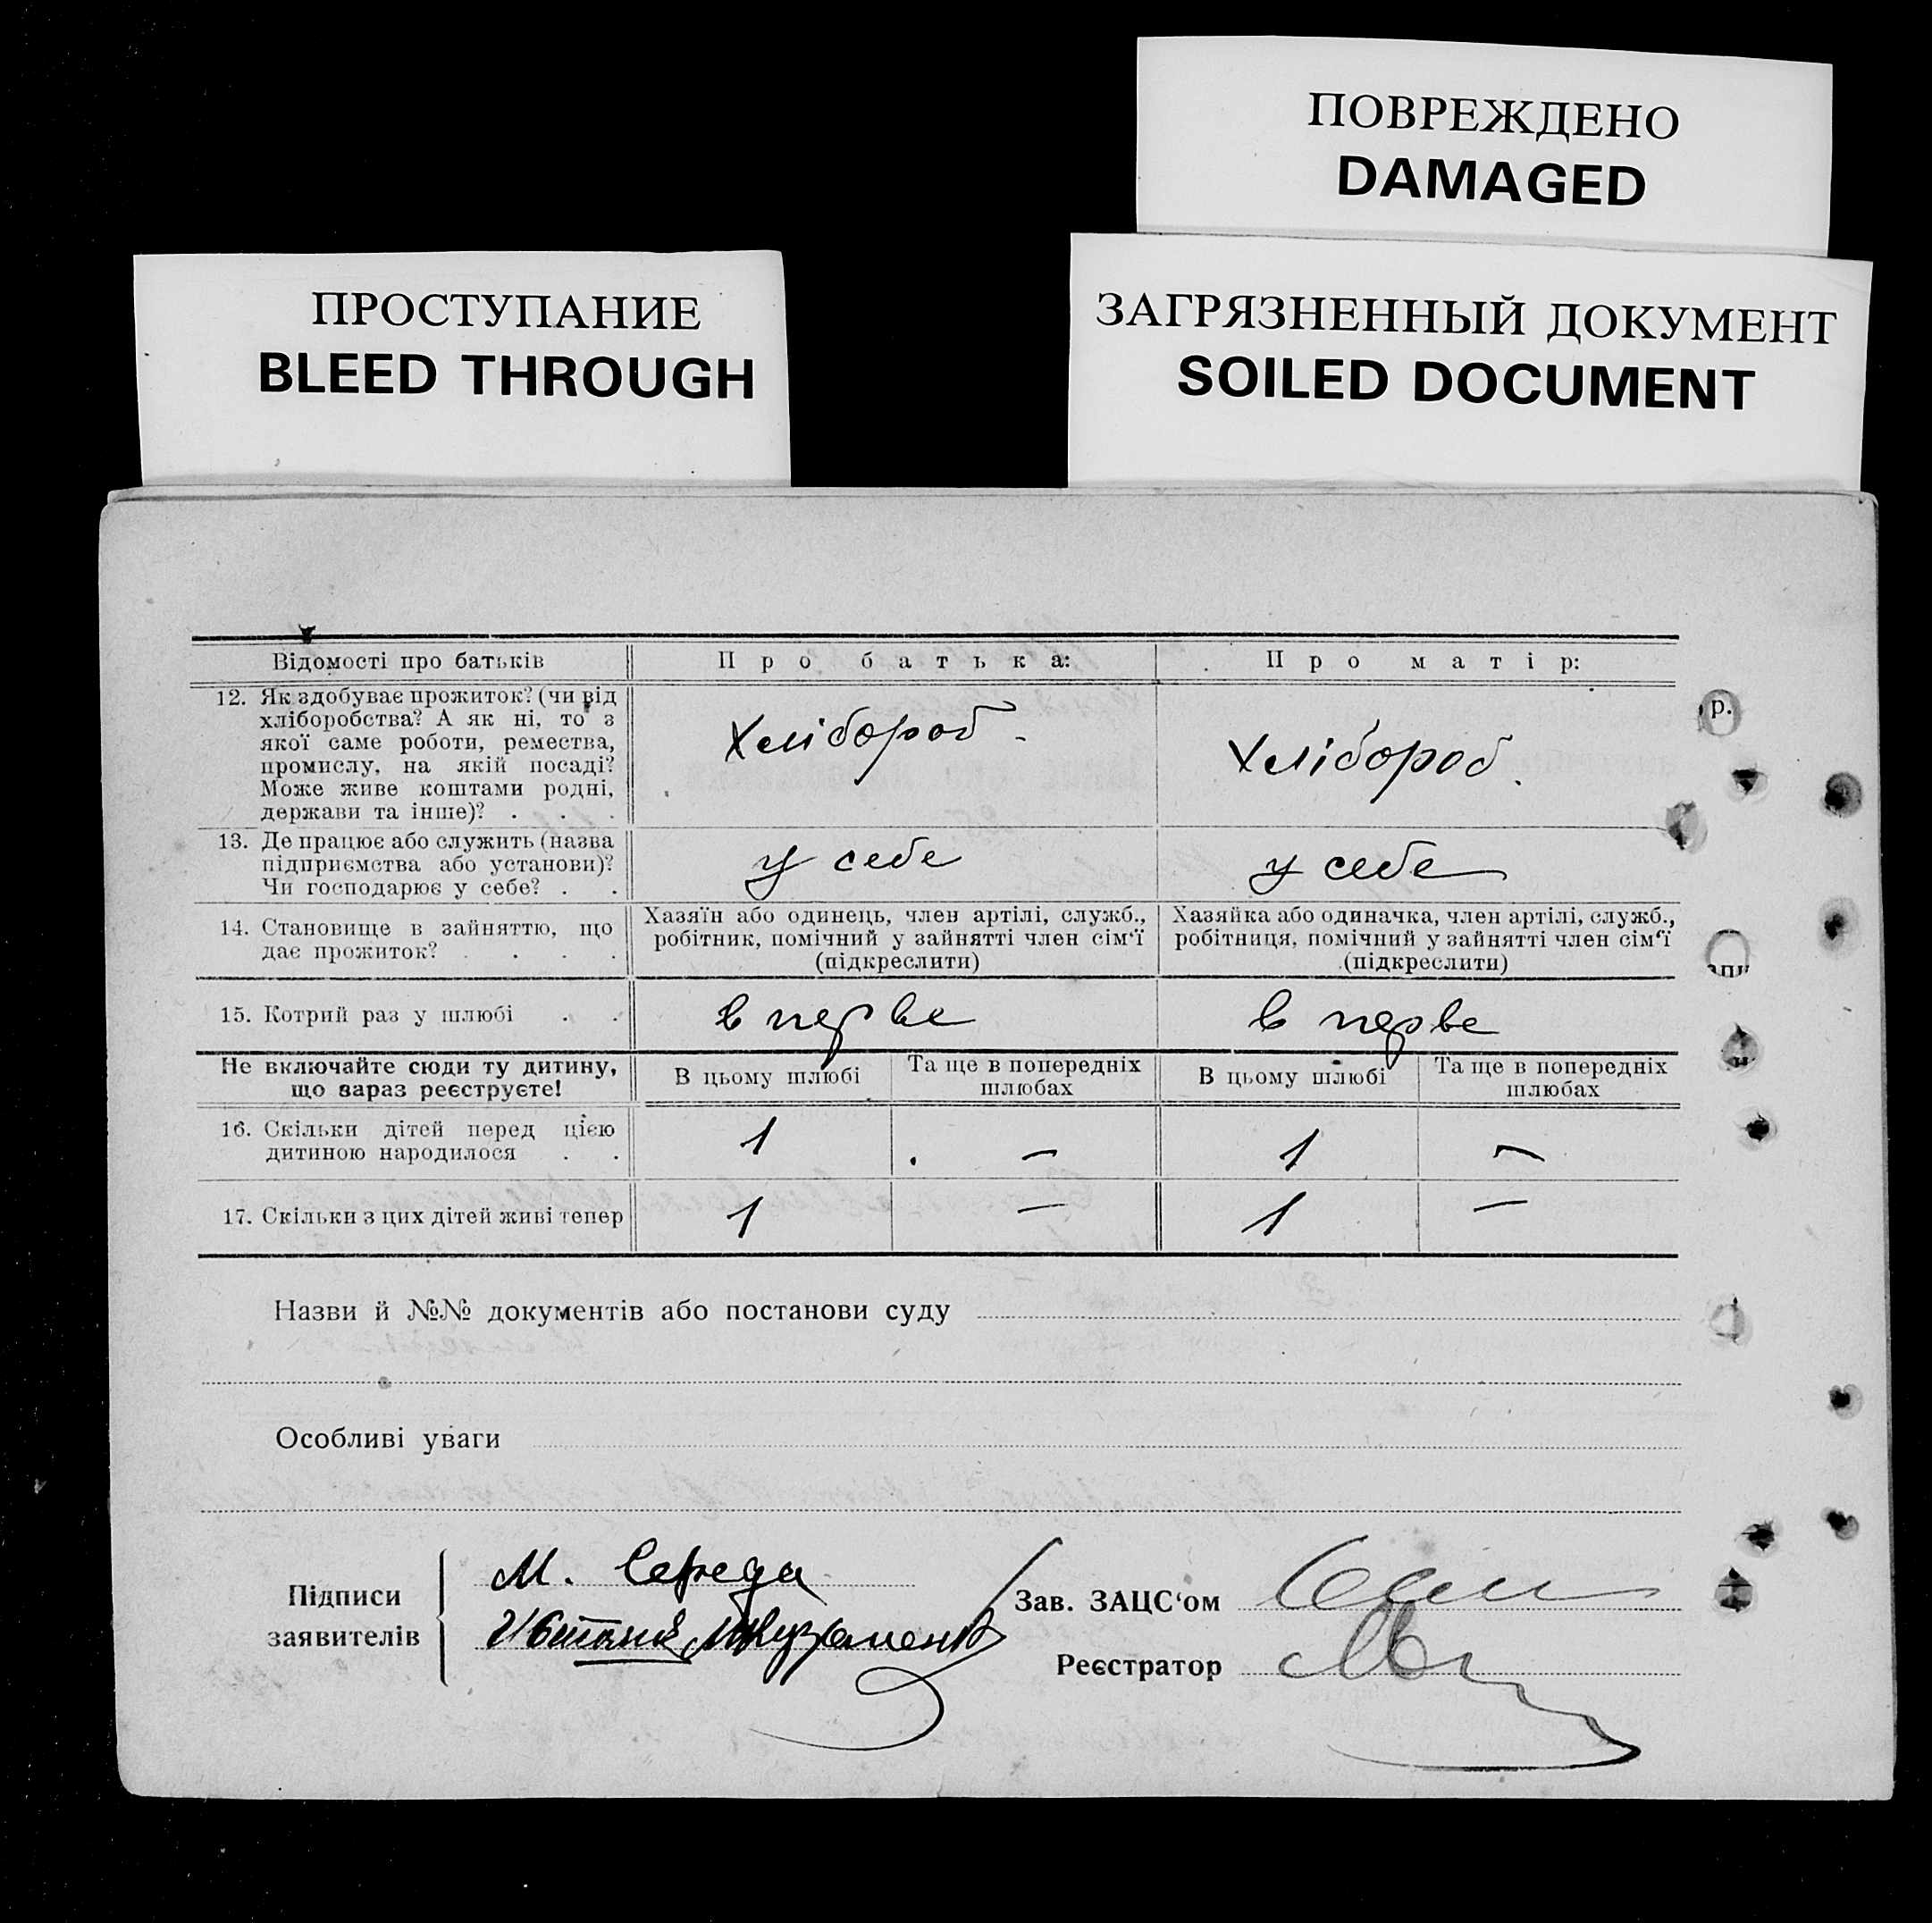 ПОВРЕЖДЕНО
DAMAGED
ПРОСТУПАНИЕ
BLEED THROUGH
ЗАГРЯЗНЕННЫЙ ДОКУМЕНТ
SOILED DOCUMENT
Відомості про батьків
Про батька:
Про матір:
12. Як здобуває прожиток? (чи від
хліборобства? А як ні, то з
якої саме роботи, ремества,
промислу, на якій посаді?
Може живе коштами родні,
держави та інше)? . . .
Хлібороб.
Хлібороб.
р.
13. Де працює або служить (назва
підприємства або установи)?
Чи господарює у себе? . .
у себе
у себе
14. Становище в зайняттю, що
дає прожиток? . . . .
Хазяїн або одинець, член артілі, служб.,
робітник, помічний у зайнятті член сім‘ї
(підкреслити)
Хазяйка або одиначка, член артілі, служб.,
робітниця, помічний у зайнятті член сім‘ї
(підкреслити)
15. Котрий раз у шлюбі . .
в перве
в перве
Не включайте сюди ту дитину,
що зараз реєструєте!
В цьому шлюбі
Та ще в попередніх
шлюбах
В цьому шлюбі
Та ще в попередніх
шлюбах
16. Скільки дітей перед цією
дитиною народилося . .
1 — 1 —
17. Скільки з цих дітей живі тепер
1 — 1 —
Назви й №№ документів або постанови суду
Особливі уваги
Підписи
заявителів
М. Середа
Зав. ЗАЦС‘ом
Реєстратор